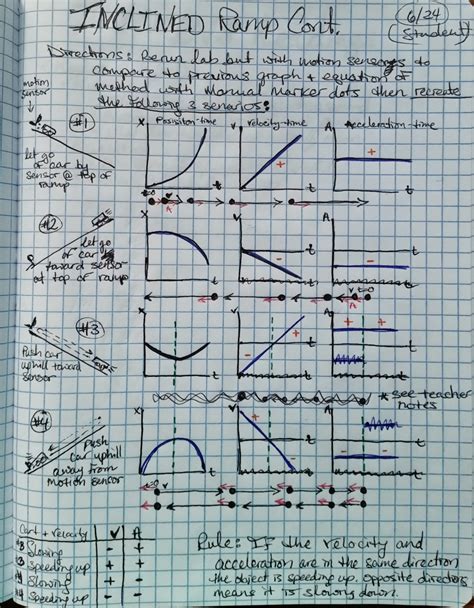 INCLINED Ramp Cont.
6/24
(Student)
Directions: Rerun lab but with motion sensors to
compare to previous graph + equation of
method with manual marker dots then recreate
the following 3 scenarios:
motion
sensor
#1
let go
of car by
sensor @ top of
ramp
Position-time
Velocity-time
Acceleration-time
X
V
A
+
+
t
t
t
t=0
V
A
#2
let go
of car
toward sensor
at top of ramp
X
V
A
-
-
t
t
t
V
t=0
A
#3
Push car
uphill toward
sensor
X
V
A
-
+
+
+
t
t
t
* see teacher
notes
#4
Push
car uphill
away from
motion sensor
X
V
A
+
-
-
t
t
t
Cart + velocity V A
#3 Slowing - +
#3 speeding up + +
#4 Slowing + -
#4 speeding up - -
Rule: If the velocity and
acceleration are in the same direction
the object is speeding up. Opposite directions
means it is slowing down.